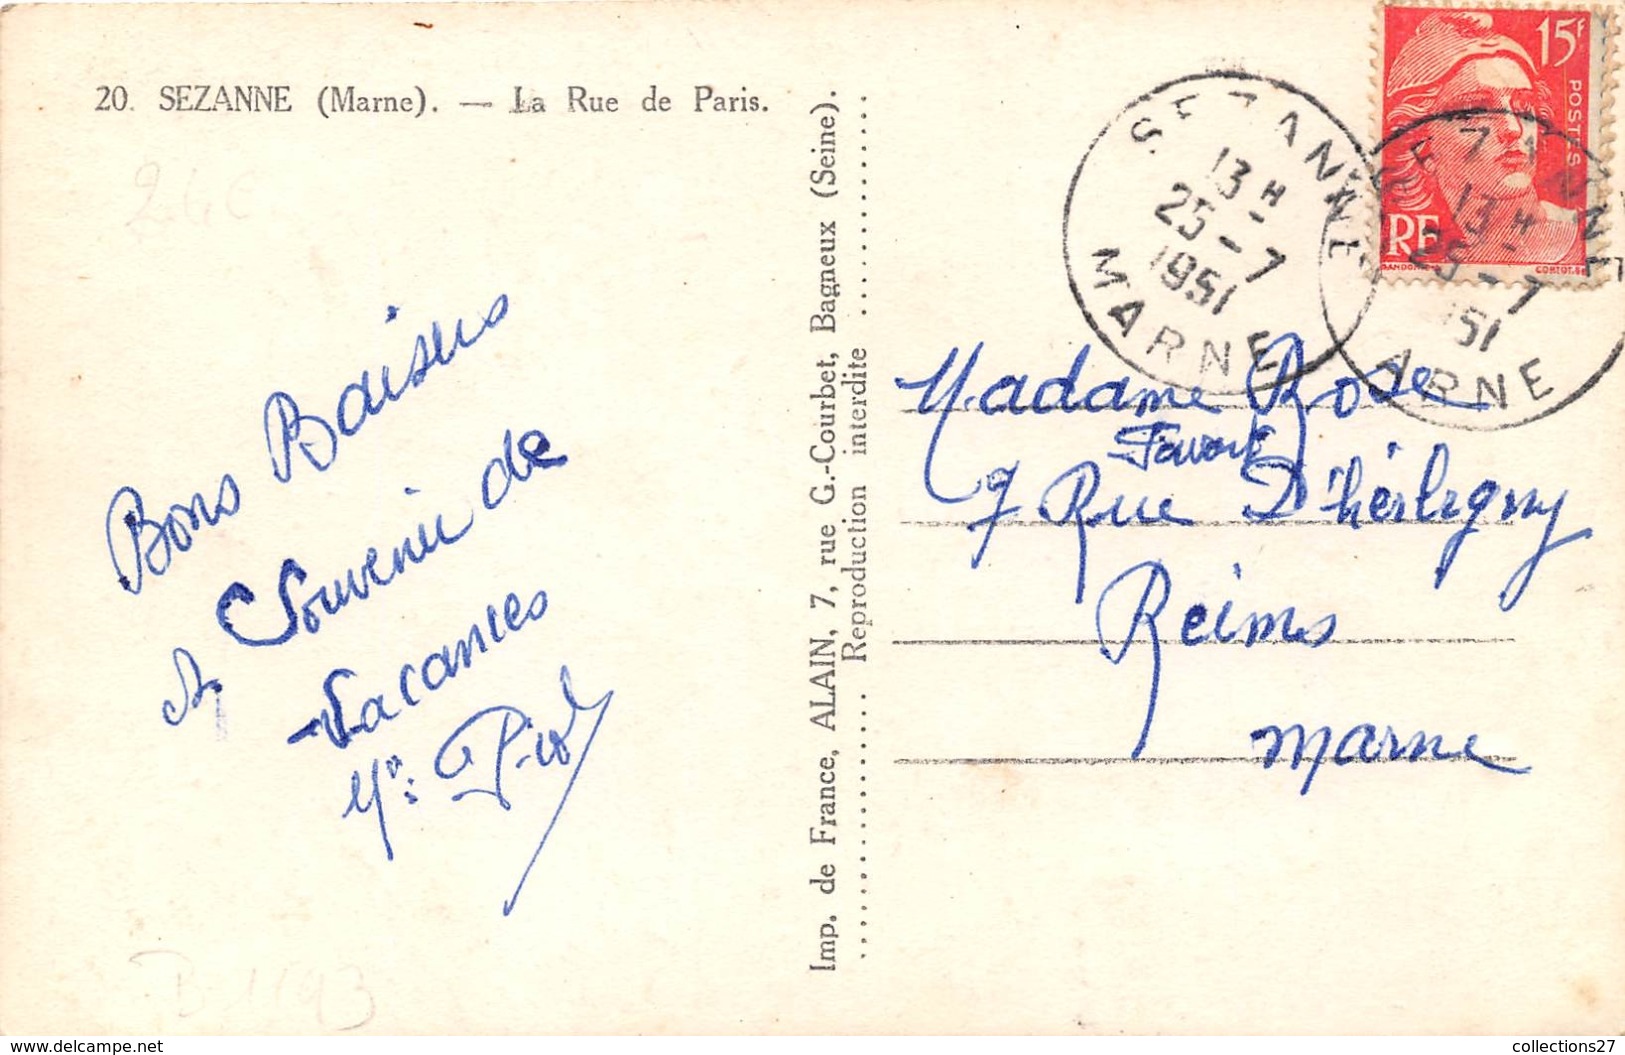 20. SEZANNE (Marne). — La Rue de Paris.
24€
Bons Baisers
et Souvenir de
Vacances
B-1193
Imp. de France, ALAIN, 7, rue G.-Courbet, Bagneux (Seine).
Reproduction interdite
15F
POSTES
RF
GANDON
CORTOT
SEZANNE
13 H
25-7
1951
MARNE
EZANNE
13 H
25-7
51
ARNE
Madame Rose
7 Rue D'hérbigny
Reims
Marne
www.delcampe.net
collections27